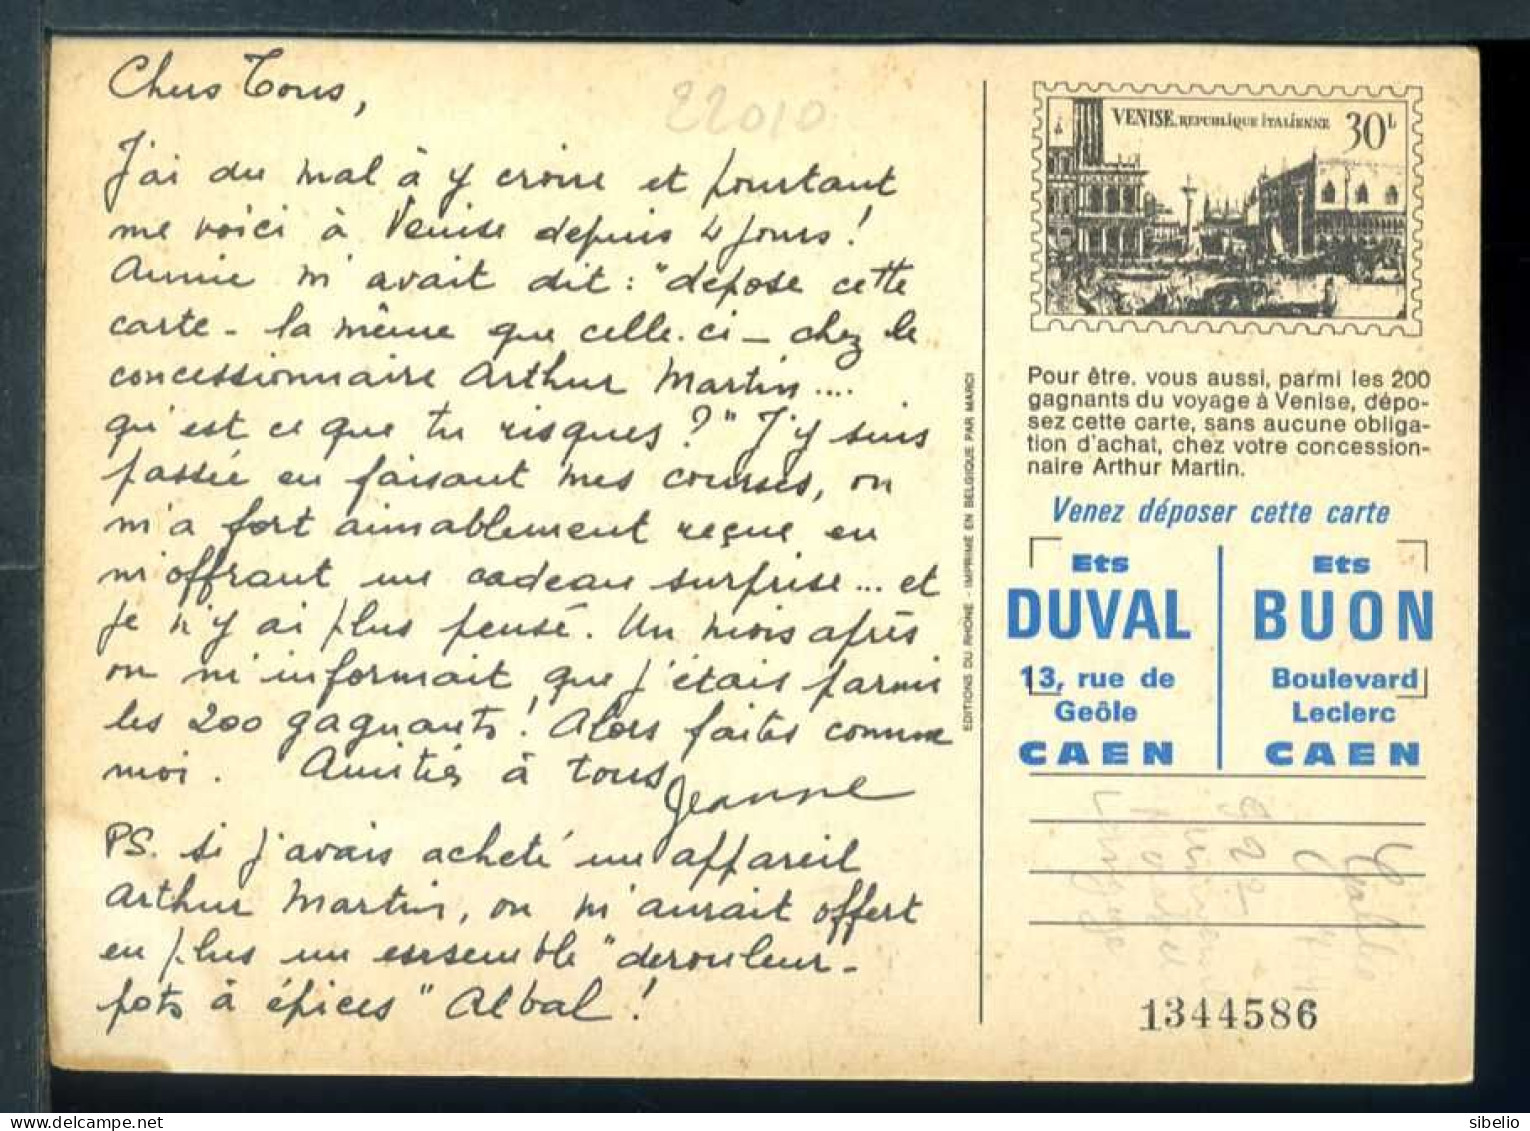 Chers Tous,
22010
J'ai du mal à y croire et pourtant
me voici à Venise depuis 4 jours!
Annie m'avait dit : "dépose cette
carte - la même que celle-ci - chez le
concessionnaire Arthur Martin....
qu'est ce que tu risques ?" J'y suis
passée en faisant mes courses, on
m'a fort aimablement reçue en
m'offrant un cadeau surprise... et
je n'y ai plus pensé. Un mois après
on m'informait que j'étais parmi
les 200 gagnants! Alors faites comme
moi. Amitiés à tous
Jeanne
PS. si j'avais acheté un appareil
Arthur Martin, on m'aurait offert
en plus un ensemble "dérouleur-
pots à épices" Albal!
EDITIONS DU RHONE - IMPRIME EN BELGIQUE PAR MARCI
VENISE. REPUBLIQUE ITALIENNE 30L
Pour être, vous aussi, parmi les 200
gagnants du voyage à Venise, dépo-
sez cette carte, sans aucune obliga-
tion d'achat, chez votre concession-
naire Arthur Martin.
Venez déposer cette carte
Ets
DUVAL
13, rue de
Geôle
CAEN
Ets
BUON
Boulevard
Leclerc
CAEN
922
1344586
sibelio
© sibelio.net